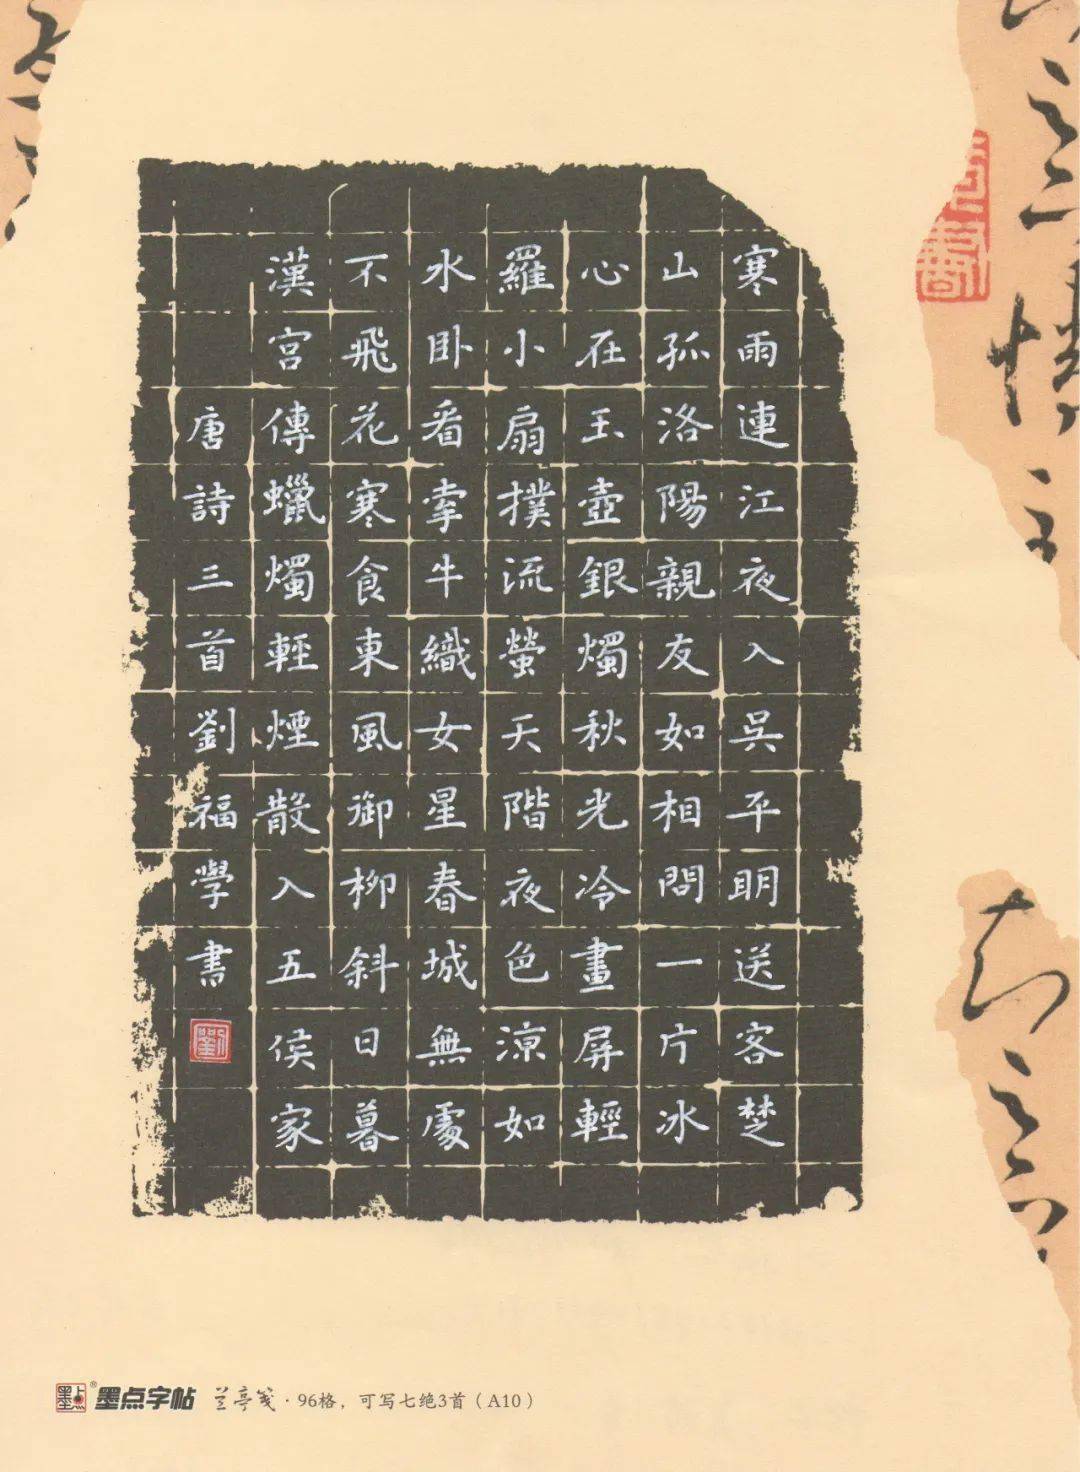 寒雨連江夜入吳平明送客楚
山孤洛陽親友如相問一片冰
心在玉壺銀燭秋光冷畫屏輕
羅小扇撲流螢天階夜色涼如
水卧看牽牛織女星春城無處
不飛花寒食東風御柳斜日暮
漢宮傳蠟燭輕煙散入五侯家
唐詩三首劉福學書
劉
墨点®墨点字帖 兰亭笺·96格，可写七绝3首（A10）